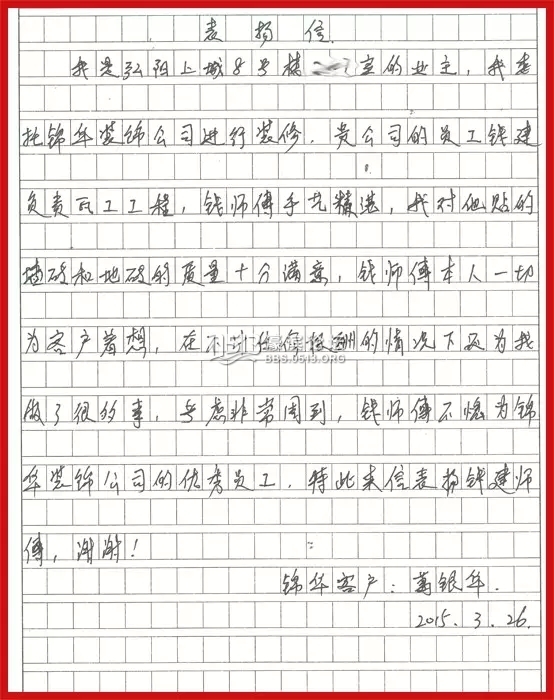 表扬信
我是弘阳上城8号楼 室的业主，我委
托锦华装饰公司进行装修．贵公司的员工钱建
负责瓦工工程，钱师傅手艺精湛，我对他贴的
墙砖和地砖的质量十分满意，钱师傅本人一切
为客户着想，在不计任何报酬的情况下还为我
做了很多事，考虑非常周到，钱师傅不愧为锦
华装饰公司的优秀员工．特此来信表扬钱建师
傅，谢谢！
锦华客户：葛银华．
2015.3.26.
BBS.0513.ORG